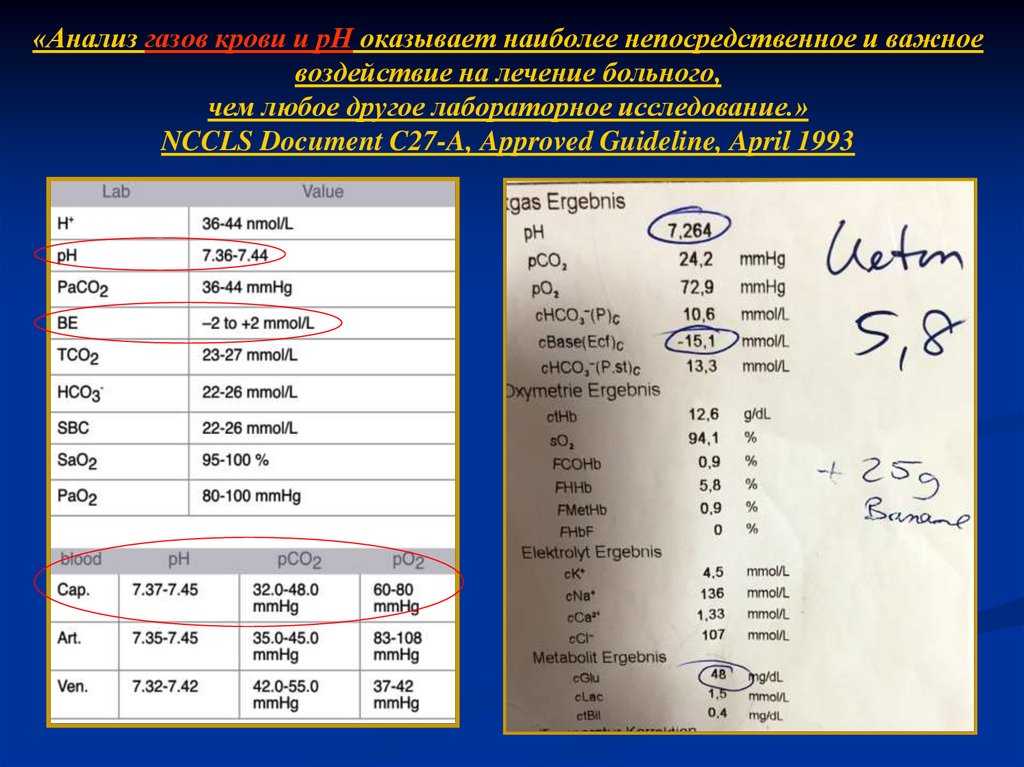 «Анализ газов крови и pH оказывает наиболее непосредственное и важное
воздействие на лечение больного,
чем любое другое лабораторное исследование.»
NCCLS Document C27-A, Approved Guideline, April 1993
Lab Value
H⁺ 36-44 nmol/L
pH 7.36-7.44
PaCO₂ 36-44 mmHg
BE –2 to +2 mmol/L
TCO₂ 23-27 mmol/L
HCO₃⁻ 22-26 mmol/L
SBC 22-26 mmol/L
SaO₂ 95-100 %
PaO₂ 80-100 mmHg
blood pH pCO₂ pO₂
Cap. 7.37-7.45 32.0-48.0 60-80
mmHg mmHg
Art. 7.35-7.45 35.0-45.0 83-108
mmHg mmHg
Ven. 7.32-7.42 42.0-55.0 37-42
mmHg mmHg
gas Ergebnis
pH 7,264
pCO₂ 24,2 mmHg
pO₂ 72,9 mmHg
cHCO₃⁻(P)c 10,6 mmol/L
cBase(Ecf)c -15,1 mmol/L
cHCO₃⁻(P.st)c 13,3 mmol/L
Oxymetrie Ergebnis
ctHb 12,6 g/dL
sO₂ 94,1 %
FCOHb 0,9 %
FHHb 5,8 %
FMetHb 0,9 %
FHbF 0 %
Elektrolyt Ergebnis
cK⁺ 4,5 mmol/L
cNa⁺ 136 mmol/L
cCa²⁺ 1,33 mmol/L
cCl⁻ 107 mmol/L
Metabolit Ergebnis
cGlu 48 mg/dL
cLac 1,5 mmol/L
ctBil 0,4 mg/dL
Keton
5,8
+ 25g
Banane